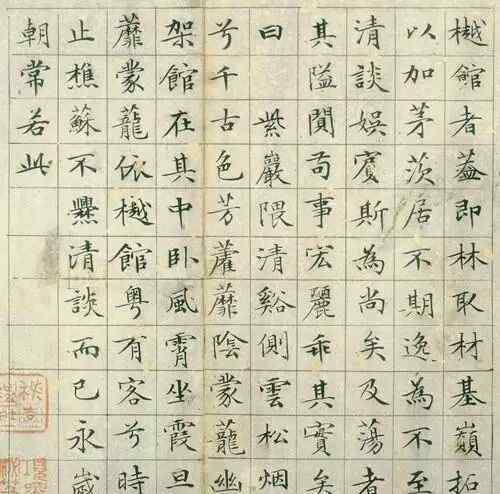 樾館者蓋即林取材基嶺拓
以加茅茨居不期逸為不至
清談娛賓斯為尚矣及蕩者
其隘閴苟事宏麗乖其實矣
曰 紫巖隈清谿側雲松烟
兮千古色芳藿蘼陰蒙蘢幽
架館在其中臥風霄坐霞旦
蘼蒙蘢依樾館粵有客兮時
止樵蘇不爨清談而已永歲
朝常若此